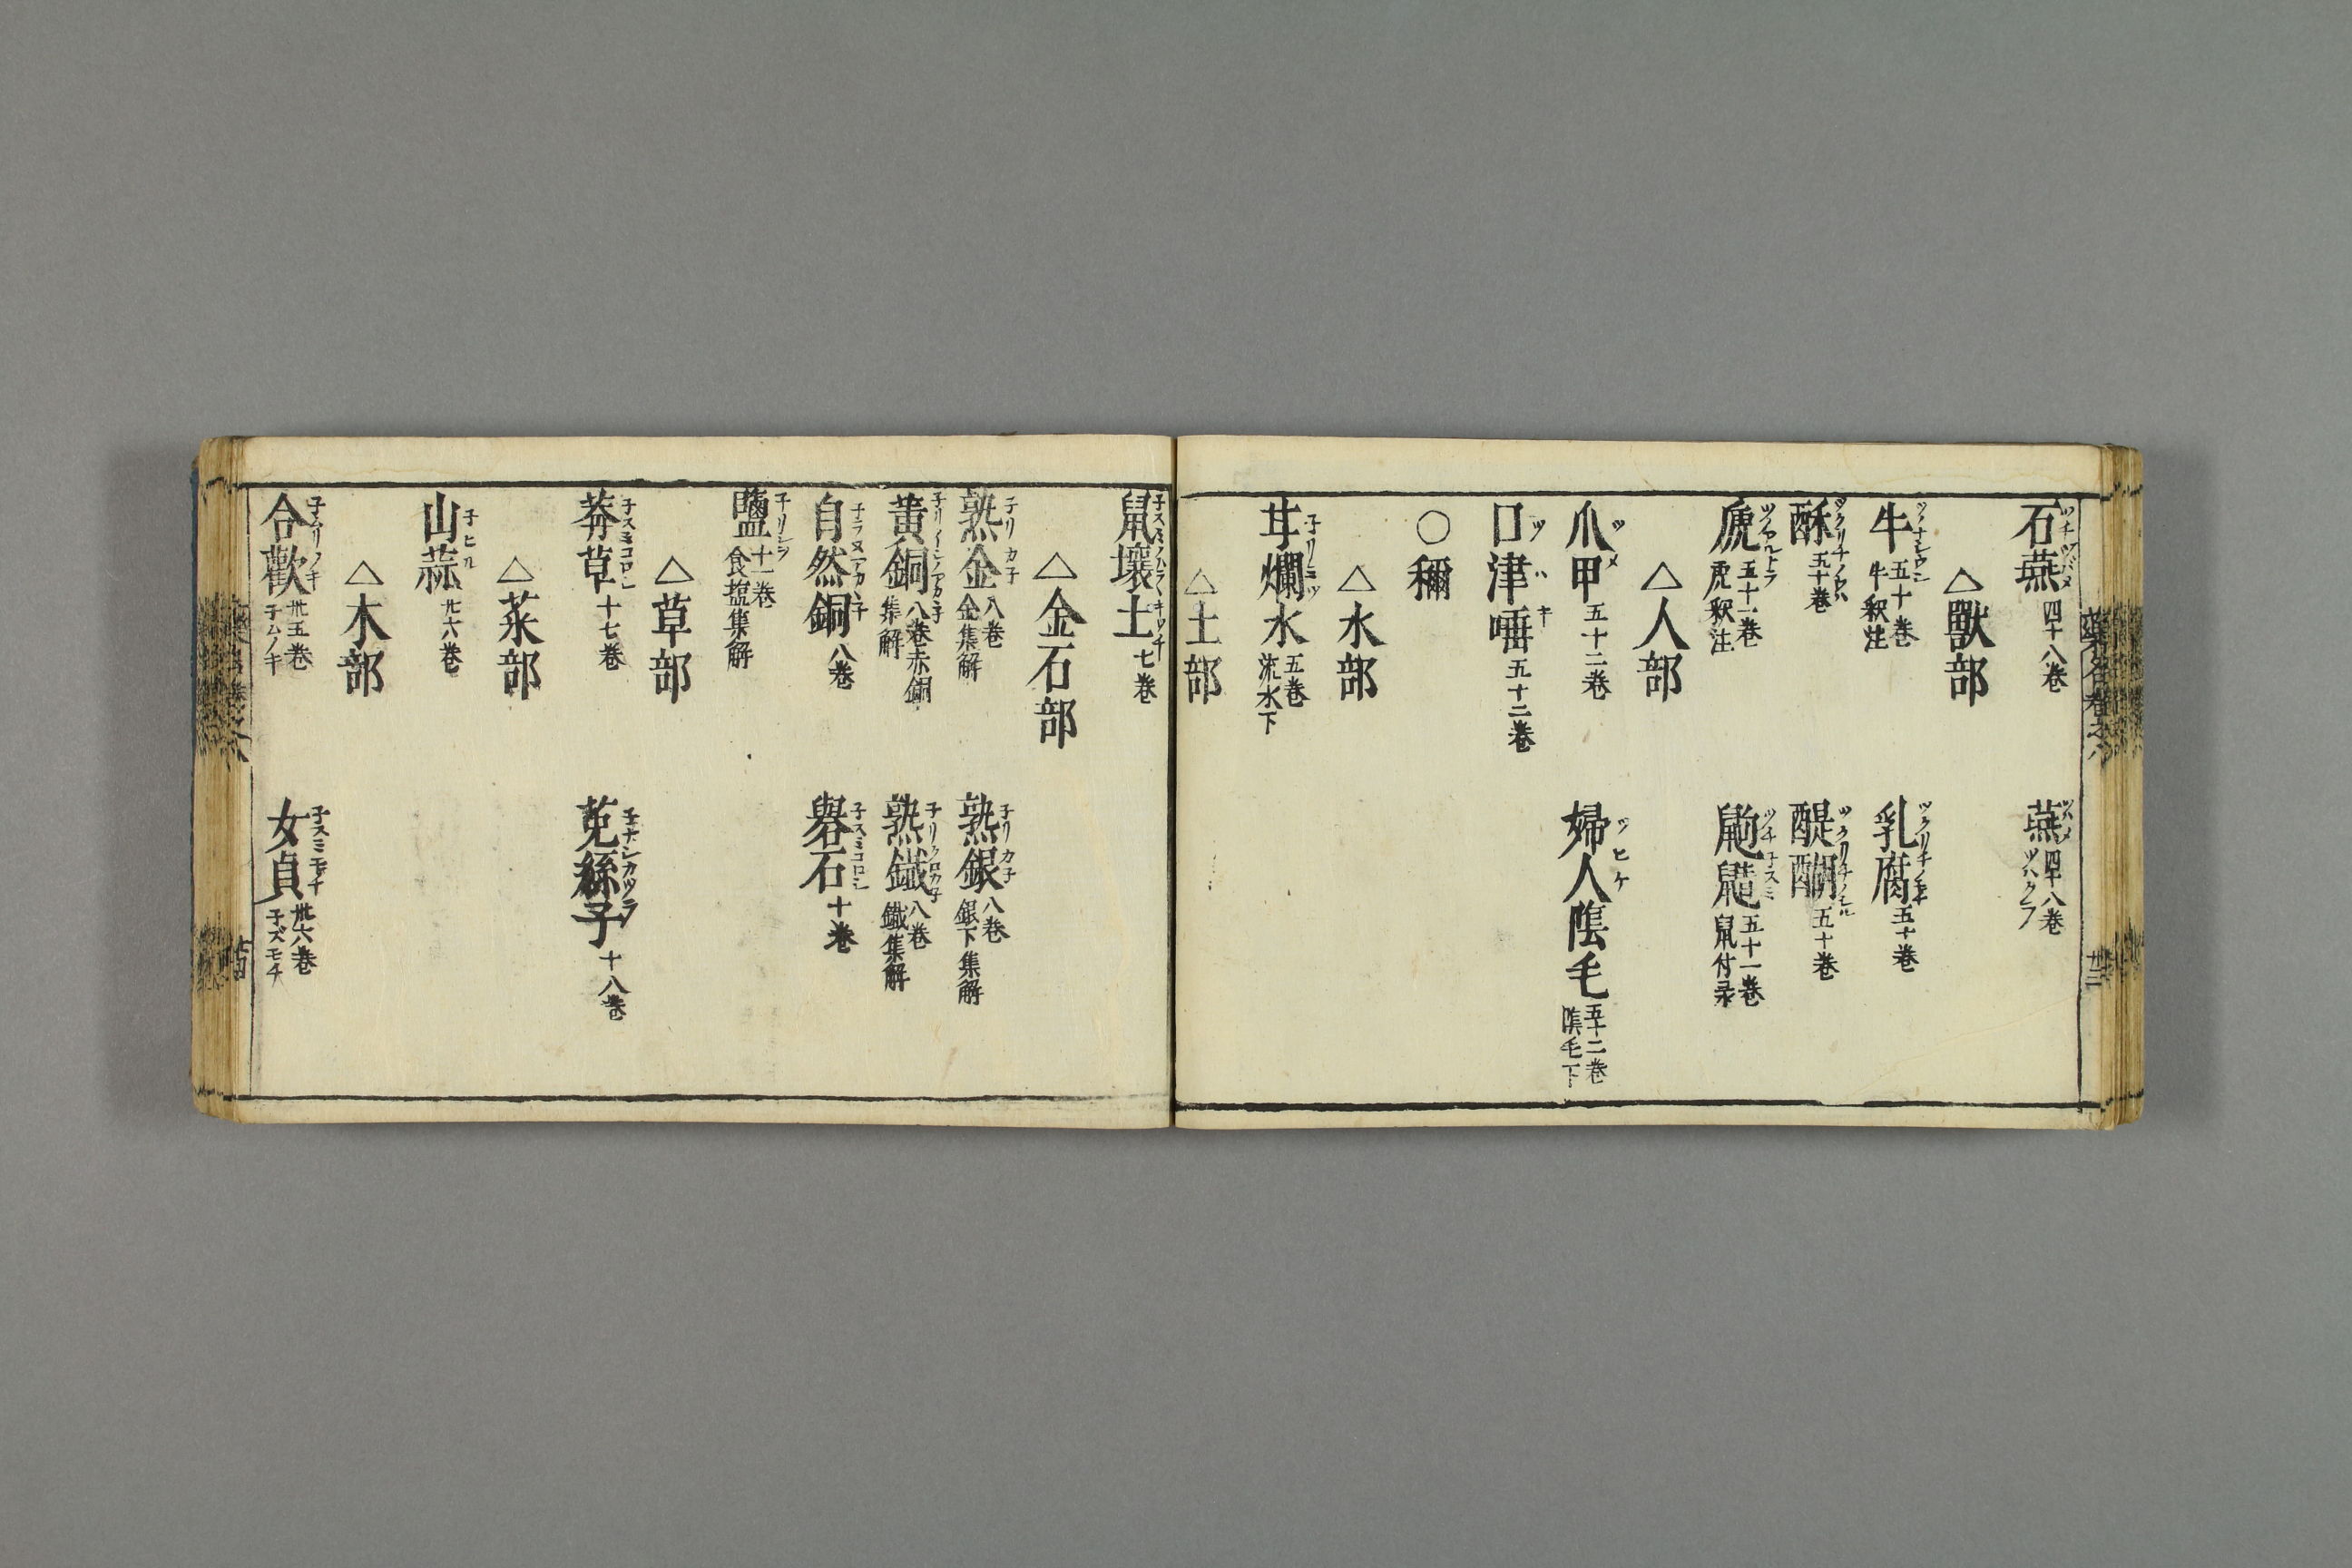 石燕 ツチツバメ 四十八巻
燕 ツバメ 四十八巻 ツバクラ
△獸部
牛 ツノナシウシ 五十巻 牛釈注
乳腐 ツクリチノモチ 五十巻
酥 五十巻
醍醐 ツクリチノシル 五十巻
虎 五十一巻 虎釈注
五十一巻 鼠付录
△人部
爪甲 ツメ 五十二巻
婦人陰毛 ツヒケ 五十二巻 陰毛下
口津唾 ツバキ 五十二巻
○禰
△水部
甘爛水 子リミツ 五巻 流水下
△土部
鼠壤土 七巻
△金石部
熟金 子リカ子 八巻 金集解
熟銀 子リカ子 八巻 銀下集解
黄銅 八巻赤銅 集解
熟鐵 子リクロカ子 八巻 鐵集解
自然銅 八巻
礜石 子スミコロシ 十巻
鹽 子リシヲ 十一巻 食塩集解
△草部
莽草 子スミコロシ 十七巻
菟絲子 子ナシカツラ 十八巻
△菜部
山蒜 子ヒル 廿六巻
△木部
合歡 子ムリノキ 卅五巻 子ムノキ
女貞 子スミモチ 卅六巻 子ズモチ